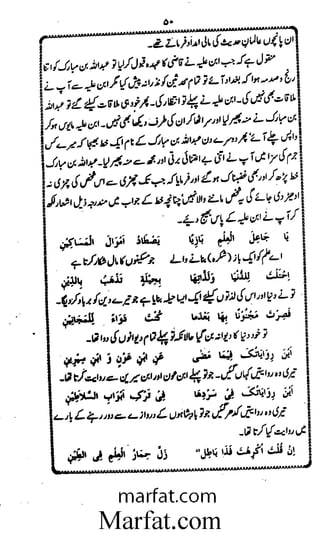 ۵۰
ان پانچوں عالمان حدیث کی مالی امداد فرماتے تھے۔
منقول ہے کہ جب ابن علیہ نے قاضی کا عہدہ قبول کر لیا تو عبداللہ بن مبارک کو اتنا
رنج و صدمہ ہوا کہ بغداد آئے تو تمام محدثین کو نذرانہ پیش کیا مگر ابن علیہ سے آپ نے
ملاقات بھی نہیں کی۔ ابن علیہ نے پہلے تو انتظار کی۔ پھر خود ہی ملاقات کیلئے گئے تو عبداللہ
بن مبارک نے منہ پھیر لیا اور سر اٹھا کر ان کی طرف دیکھا بھی نہیں۔ ابن علیہ مایوس ہو کر
واپس چلے آئے پھر دوسرے دن عبداللہ بن مبارک کے نام ایک خط بھیجا کہ میرے کس
جرم کی سزا میں آپ نے اتنی بے اعتنائی برتی اور مجھ سے منہ پھیر لیا۔ عبداللہ بن مبارک
خط پڑھ کر اور بھی غضبناک ہو گئے اور فرمایا کہ جب تک چھڑی سے اس شخص کی چمڑی نہ
ادھیڑ دی جائے گی یہ شخص ماننے والا نہیں چنانچہ خط کے جواب میں مندرجہ ذیل اشعار لکھ
کر آپ نے ابن علیہ کے پاس بھیج دیئے۔
یَا جَاعِلَ الْعِلْمِ بَازِیًا یَصْطَادُ اَمْوَالَ الْمَسَاکِیْنِ
اے علم کو ایک باز (شکرہ) بنانے والے جو مسکینوں کا مال شکار کرتا ہے
اِحْتَلْتَ لِلدُّنْیَا وَلَذَّاتِهَا بِحِیْلَةٍ تَذْهَبُ بِالدِّیْنِ
تو نے دنیا اور اس کی لذتوں کیلئے ایک ایسا حیلہ بنایا ہے جو تیرے دین کو برباد کر دیگا۔
فَصِرْتَ مَجْنُوْنًا بِهَا بَعْدَمَا کُنْتَ دَوَاءً لِّلْمَجَانِیْنِ
تو خود دنیا کا دیوانہ بن گیا حالانکہ تو پہلے تمام دیوانوں کی دوا تھا۔
اَیْنَ رِوَایَاتُکَ فِیْمَا مَضٰی عَنِ ابْنِ عَوْنٍ وَ ابْنِ سِیْرِیْنِ
تیری وہ روایتیں کہاں گئیں۔ جو تو پہلے ابن عون اور ابن سیرین سے روایت کرتا تھا۔
اَیْنَ رِوَایَاتُکَ فِیْ سَرْدِهَا فِیْ تَرْکِ اَبْوَابِ السَّلَاطِیْنِ
تیری وہ روایتیں کدھر گئیں جو تو بادشاہوں کے دروازے سے دور رہنے کے بارے
میں روایت کیا کرتا تھا۔
اِنْ قُلْتَ اُکْرِهْتُ فَذَا بَاطِلٌ" زَلَّ حِمَارُ الْعِلْمِ فِی الطِّیْنِ
marfat.com
Marfat.com